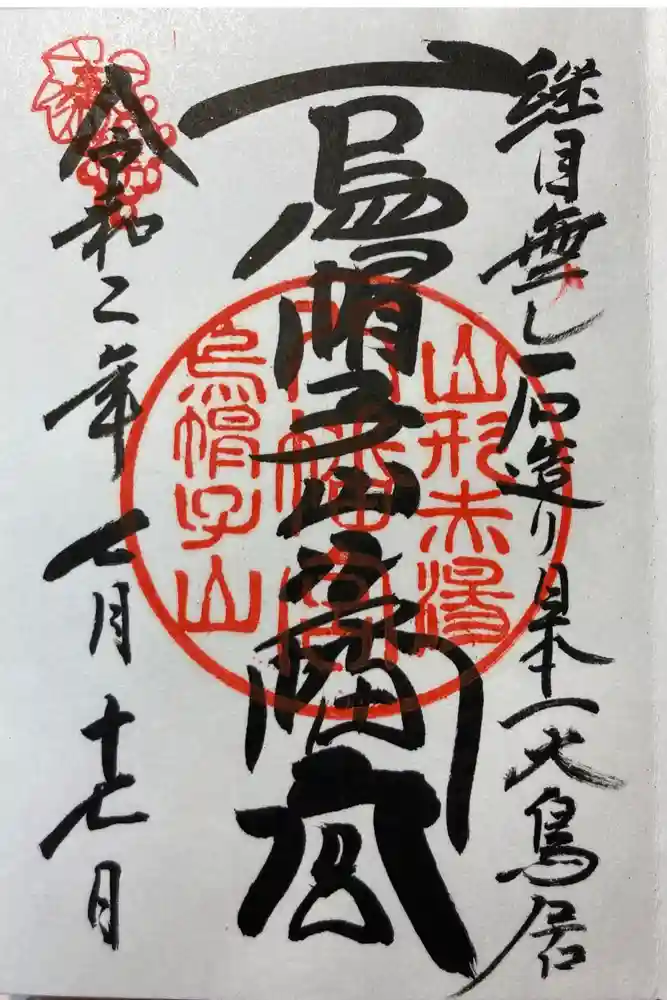 継目無し一石造り日本一大鳥居
烏帽子山八幡宮
山形赤湯
八幡宮
烏帽子山
令和二年七月十七日